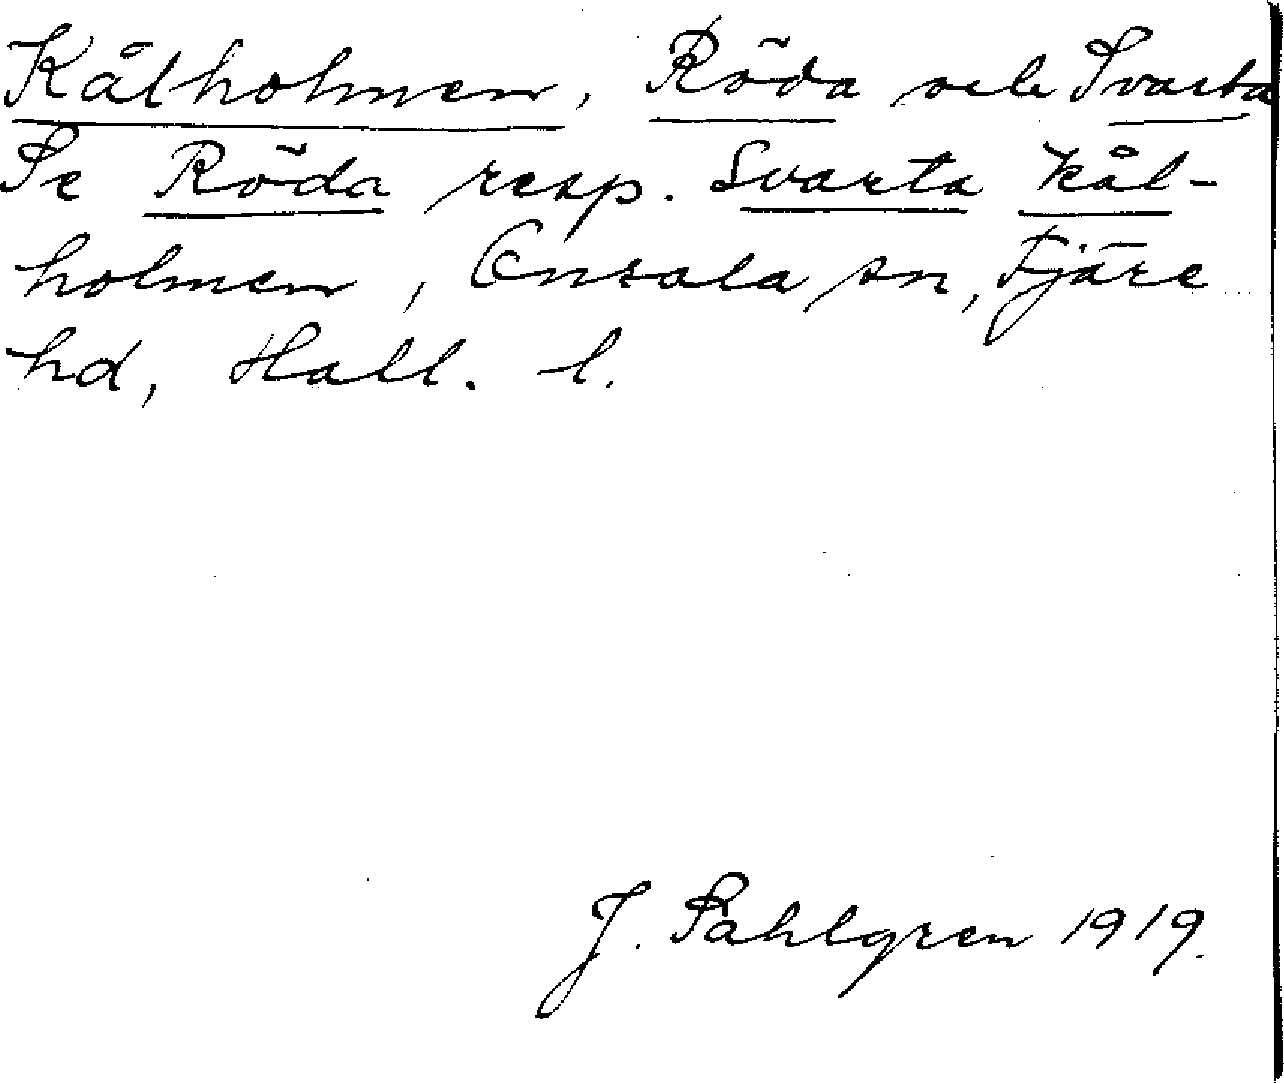 Kålholmen, Röda och Svarta
Se Röda resp. Svarta Kål-
holmen, Onsala sn, Fjäre
hd, Hall. l.
J. Sahlgren 1919.